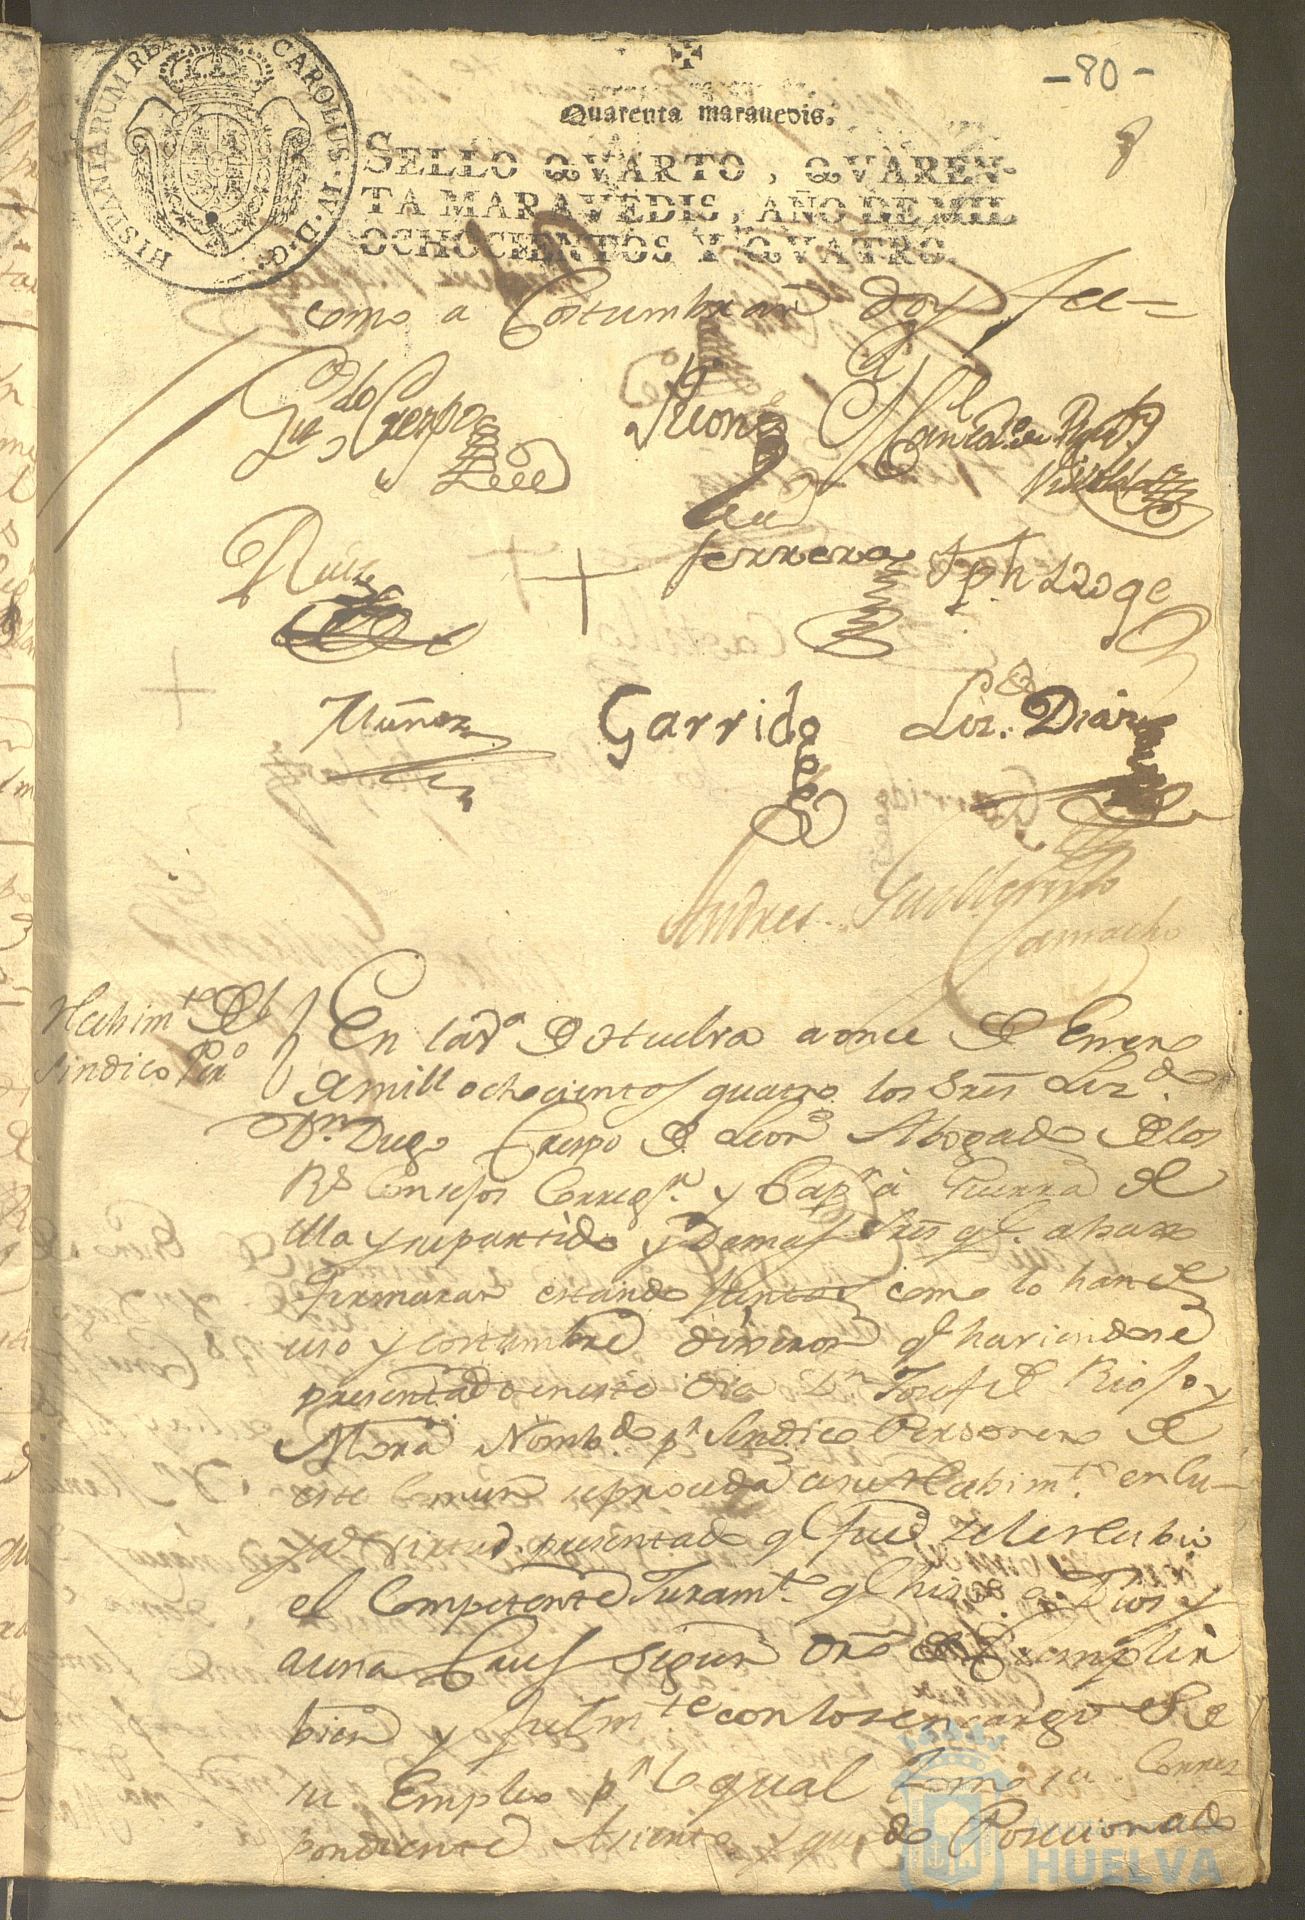 -80-
8
HISPANIARUM REX CAROLUS·IV·D·G·
Quarenta maravedis.
SELLO QVARTO, QVAREN-
TA MARAVEDIS, AÑO DE MIL
OCHOCIENTOS Y QVATRO.
como a Costumbran doy fee=
Liz.do Crespo
Ruiz
ferrera
Nuñez
Garrido
Liz.do Diaz
Andres Guillermo
Camacho
Recibim.to Del
Sindico Per.o
En la v.a De Huelva a once De Enero
De mill ochocientos quatro los Sres Liz.do
Dn. Diego Crespo De Leon Abogado De los
R.s Consejos Correg.r y Cap.n a Guerra De
Illa y su partido y Demas Sres q.e abaxo
firmaran estando Juntos como lo han De
uso y costumbre dixeron q.e haviendose
presentado en este dia Dn Josef De Rioja y
Mora Nomb.do p.r Sindico Personero De
este Comun se proceda a su Recibim.to en Cu-
ya virtud presentado q.e fue se le Recibio
el Competente Juram.to q.e hizo a Dios y
a una Cruz segun dro De cumplir
bien y fielm.te con los encargos De
su Empleo p.r lo qual tomo su Corres
pondiente Asiento y quedo Posecionado
HUELVA